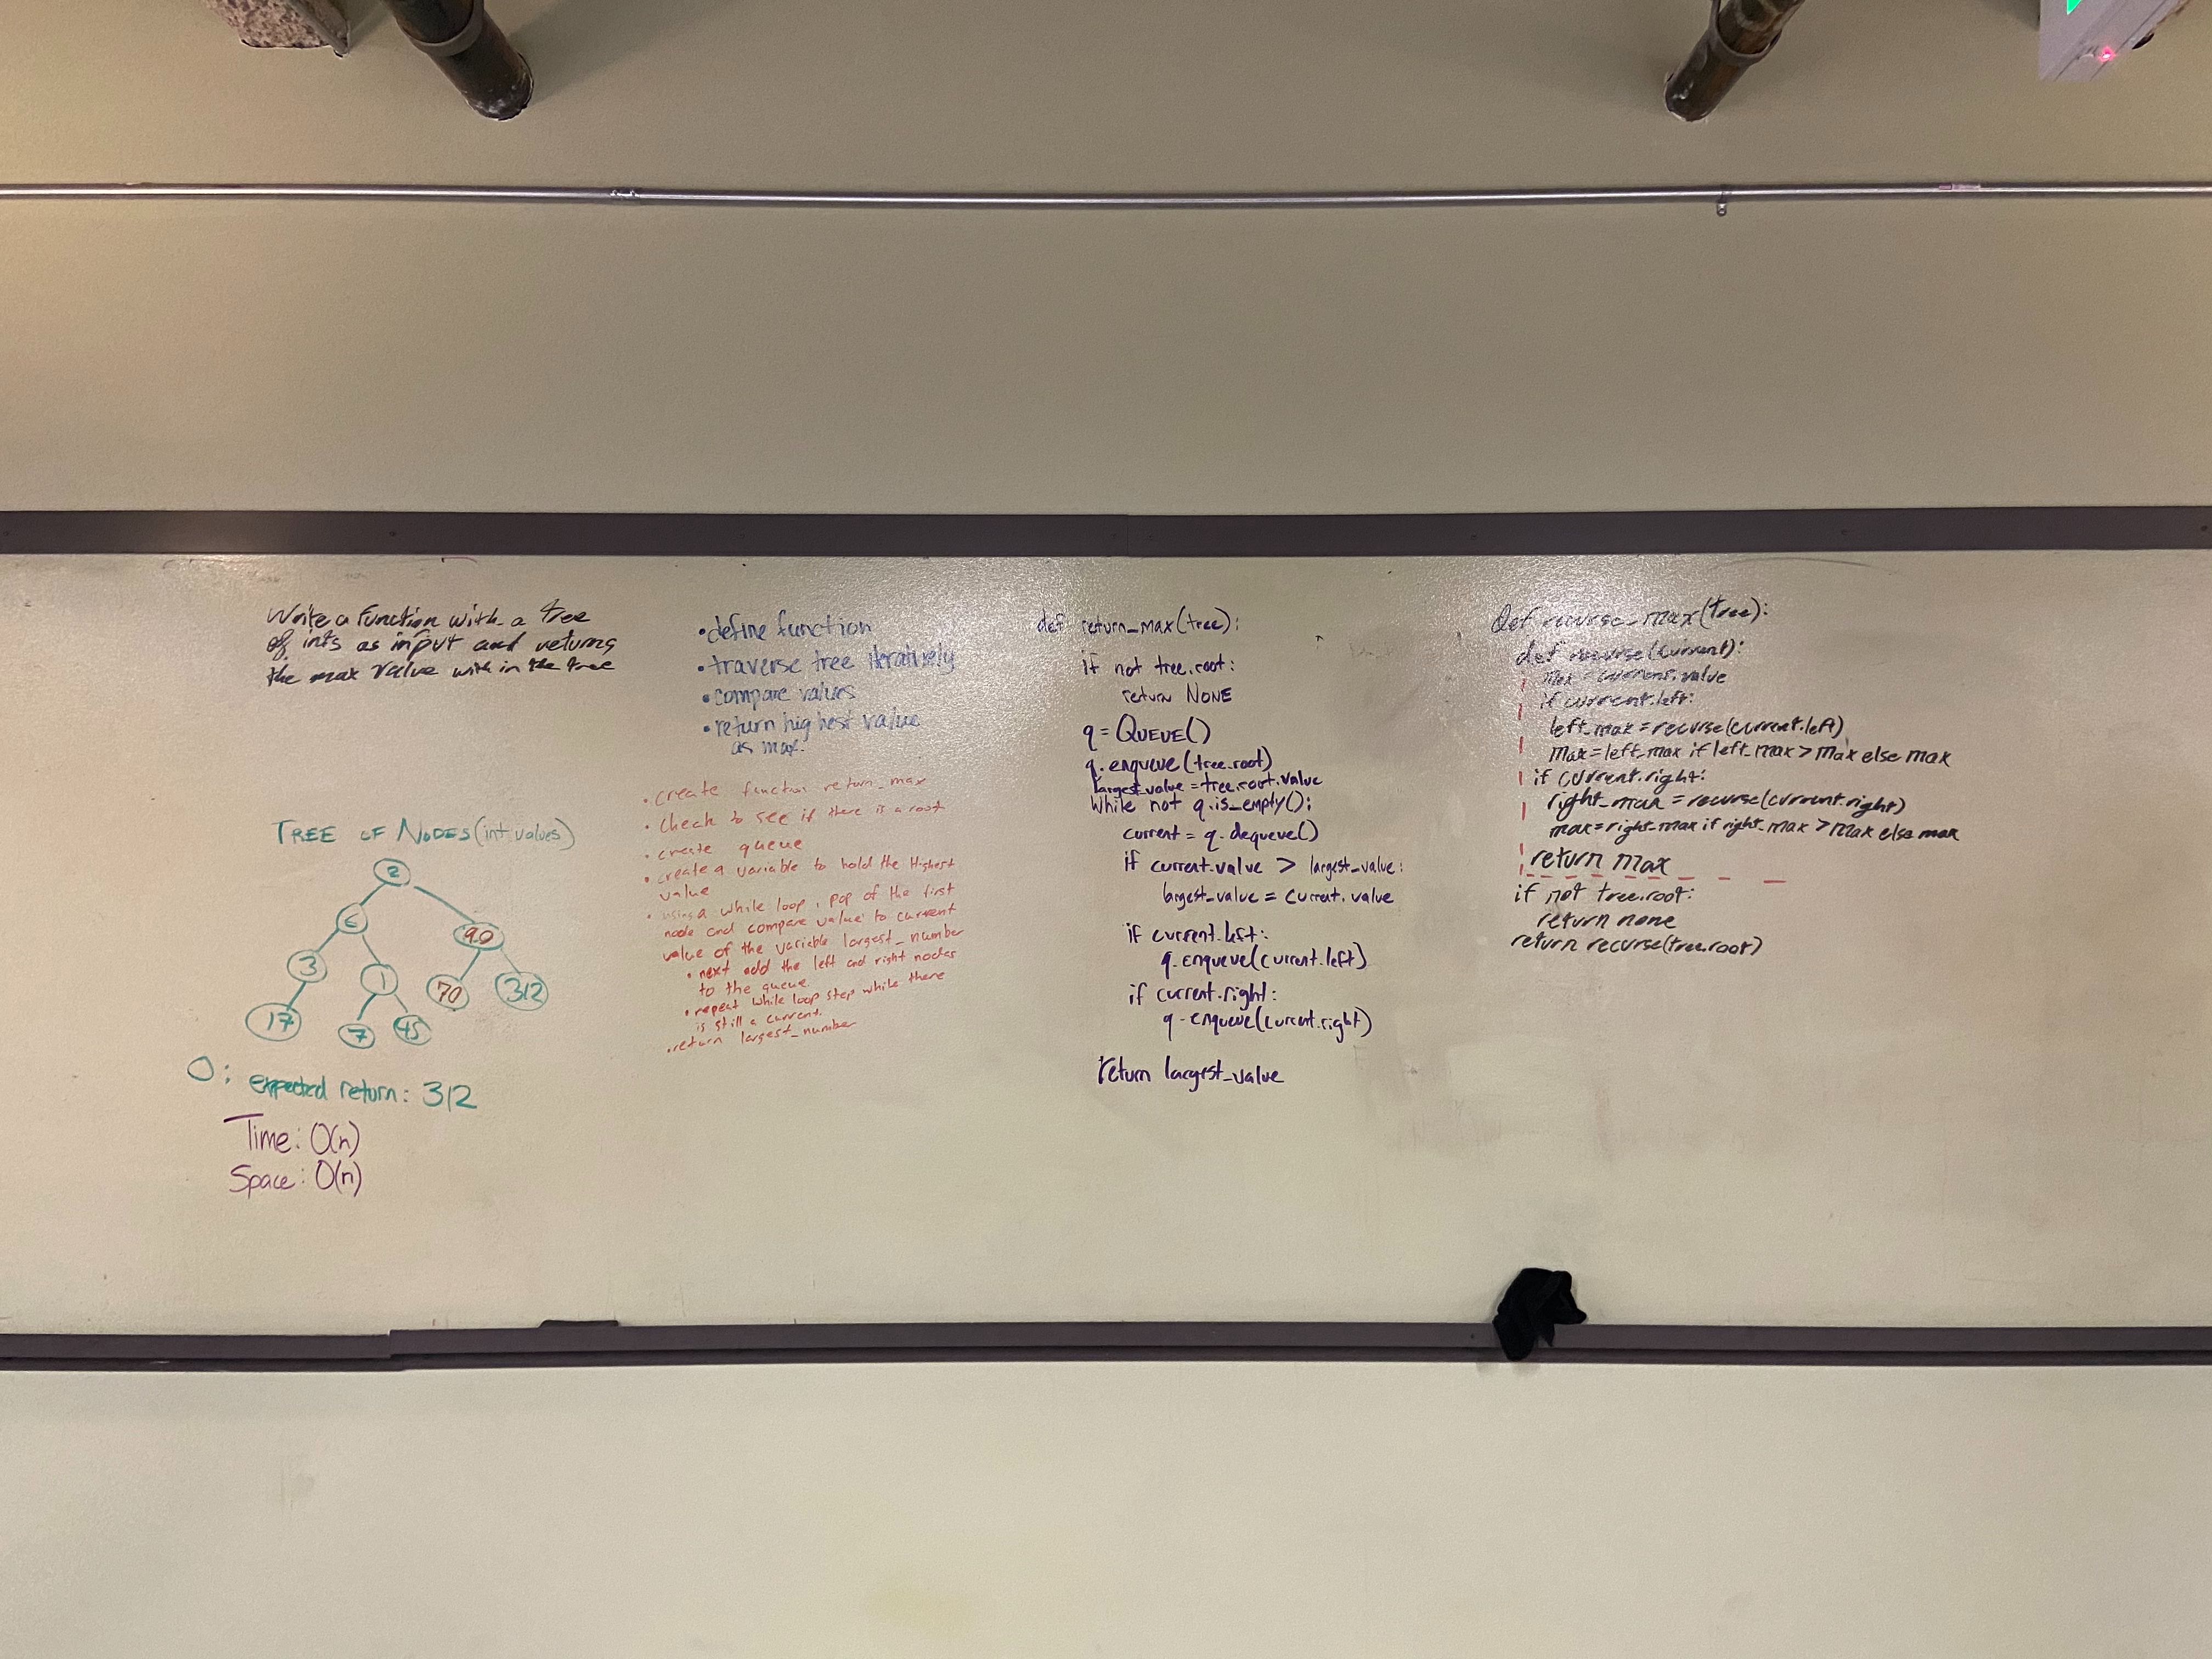 Write a function with a tree
of ints as input and returns
the max value with in the tree
TREE OF NODES (int values)
2
6
90
3
1
70
312
17
7
45
O: expected return: 312
Time: O(n)
Space: O(n)
•define function
•traverse tree iteratively
•compare values
•return highest value
as max.
•create function return_max
•check to see if there is a root
•create queue
•create a variable to hold the Highest
value
•using a while loop, pop of the first
node and compare value to current
value of the variable largest_number
•next add the left and right nodes
to the queue.
•repeat while loop step while there
is still a current.
•return largest_number
def return_max(tree):
if not tree.root:
return NONE
q = QUEUE()
q.enqueue(tree.root)
largest_value = tree.root.value
while not q.is_empty():
current = q.dequeue()
if current.value > largest_value:
largest_value = current.value
if current.left:
q.enqueue(current.left)
if current.right:
q.enqueue(current.right)
return largest_value
Def recurse_max(tree):
def recurse(current):
max = current.value
if current.left:
left_max = recurse(current.left)
max = left_max if left_max > max else max
if current.right:
right_max = recurse(current.right)
max = right_max if right_max > max else max
return max
if not tree.root:
return none
return recurse(tree.root)